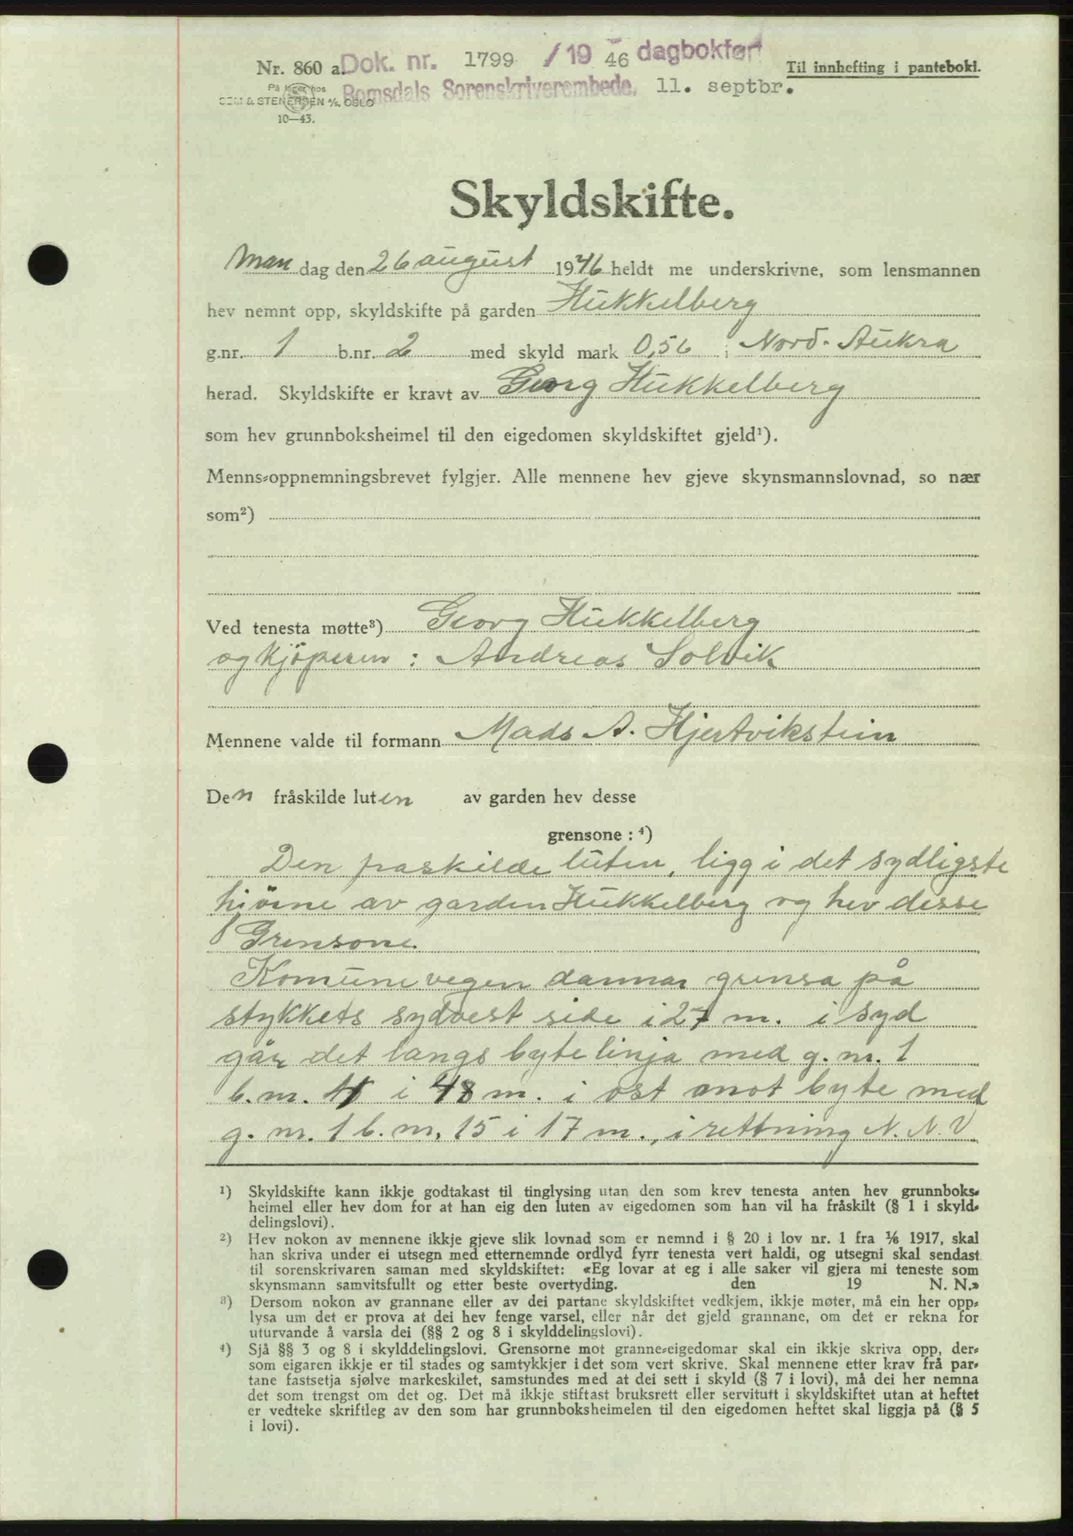 Nr. 860 a. Dok. nr. 1799 /1946 dagbokført Til innhefting i pantebok.
Romsdals Sorenskriverembede, 11. septbr.
SEM & STENERSEN A/S, OSLO
10—43.
Skyldskifte.
Man dag den 26 august 1946 heldt me underskrivne, som lensmannen
hev nemnt opp, skyldskifte på garden Hukkelberg
g.nr. 1 b.nr. 2 med skyld mark 0,56 i Nord-Aukra
herad. Skyldskifte er kravt av Georg Hukkelberg
som hev grunnboksheimel til den eigedomen skyldskiftet gjeld¹).
Menns-oppnemningsbrevet fylgjer. Alle mennene hev gjeve skynsmannslovnad, so nær
som²)
Ved tenesta møtte³) Georg Hukkelberg
og kjöperen : Andreas Solvik
Mennene valde til formann Mads A. Hjertvikstein
Den fråskilde luten av garden hev desse
grensone : ⁴)
Den fraskilde luten, ligg i det sydligste
hjörne av garden Hukkelberg og hev desse
Grensone.
Komune vegen dannar grensa på
stykkets sydvest side i 27 m. i syd
går det langs byte linja med g. nr. 1
b. nr. 11 i 48 m. i ost mot byte med
g. nr. 1 b. nr, 15 i 17 m., i rettning N. N. V
¹) Skyldskifte kann ikkje godtakast til tinglysing utan den som krev tenesta anten hev grunnboks-
heimel eller hev dom for at han eig den luten av eigedomen som han vil ha fråskilt (§ 1 i skyld-
delingslovi).
²) Hev nokon av mennene ikkje gjeve slik lovnad som er nemnd i § 20 i lov nr. 1 fra 1/6 1917, skal
han skriva under ei utsegn med etternemnde ordlyd fyrr tenesta vert haldi, og utsegni skal sendast
til sorenskrivaren saman med skyldskiftet: «Eg lovar at eg i alle saker vil gjera mi teneste som
skynsmann samvitsfullt og etter beste overtyding. den 19 N. N.»
³) Dersom nokon av grannane eller av dei partane skyldskiftet vedkjem, ikkje møter, må ein her opp-
lysa um det er prova at dei hev fenge varsel, eller når det gjeld grannane, om det er rekna for
uturvande å varsla dei (§§ 2 og 8 i skylddelingslovi).
⁴) Sjå §§ 3 og 8 i skylddelingslovi. Grensorne mot granne-eigedomar skal ein ikkje skriva opp, der-
som eigaren ikkje er til stades og samtykkjer i det som vert skrive. Skal mennene etter krav frå par-
tane fastsetja sjølve markeskilet, samstundes med at dei sett i skyld (§ 7 i lovi), må dei her nemna
det som trengst om det og. Det må ikkje stiftast bruksrett eller servitutt i skyldskiftet utan at heftet
er vedteke skriftleg av den som har grunnboksheimelen til den eigedomen heftet skal liggja på (§ 5
i lovi).